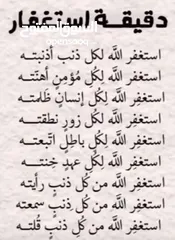 دقيقة إستغفار
استغفر اللَّه لكل ذنب أذنبته
استغفر اللَّه لِكُل مُؤمن أهنّته
استغفر اللَّه لِكُل إنسان ظلمته
استغفر اللَّه لِكُل زور نطقته
استغفر اللَّه لِكُل باطل اتبعته
استغفر اللَّه لِكُل عهدٍ خنته
استغفر اللَّه من كُل ذنبٍ رأيته
استغفر اللَّه من كُل ذنبٍ سمعته
استغفر اللَّه من كُل ذنبٍ قُلته